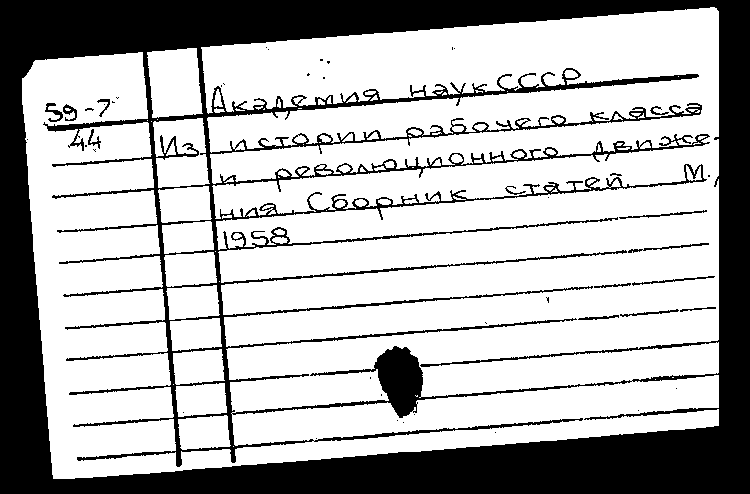 59-7 Академия наук СССР.
44 Из истории рабочего класса
и революционного движе-
ния. Сборник статей. М.,
1958